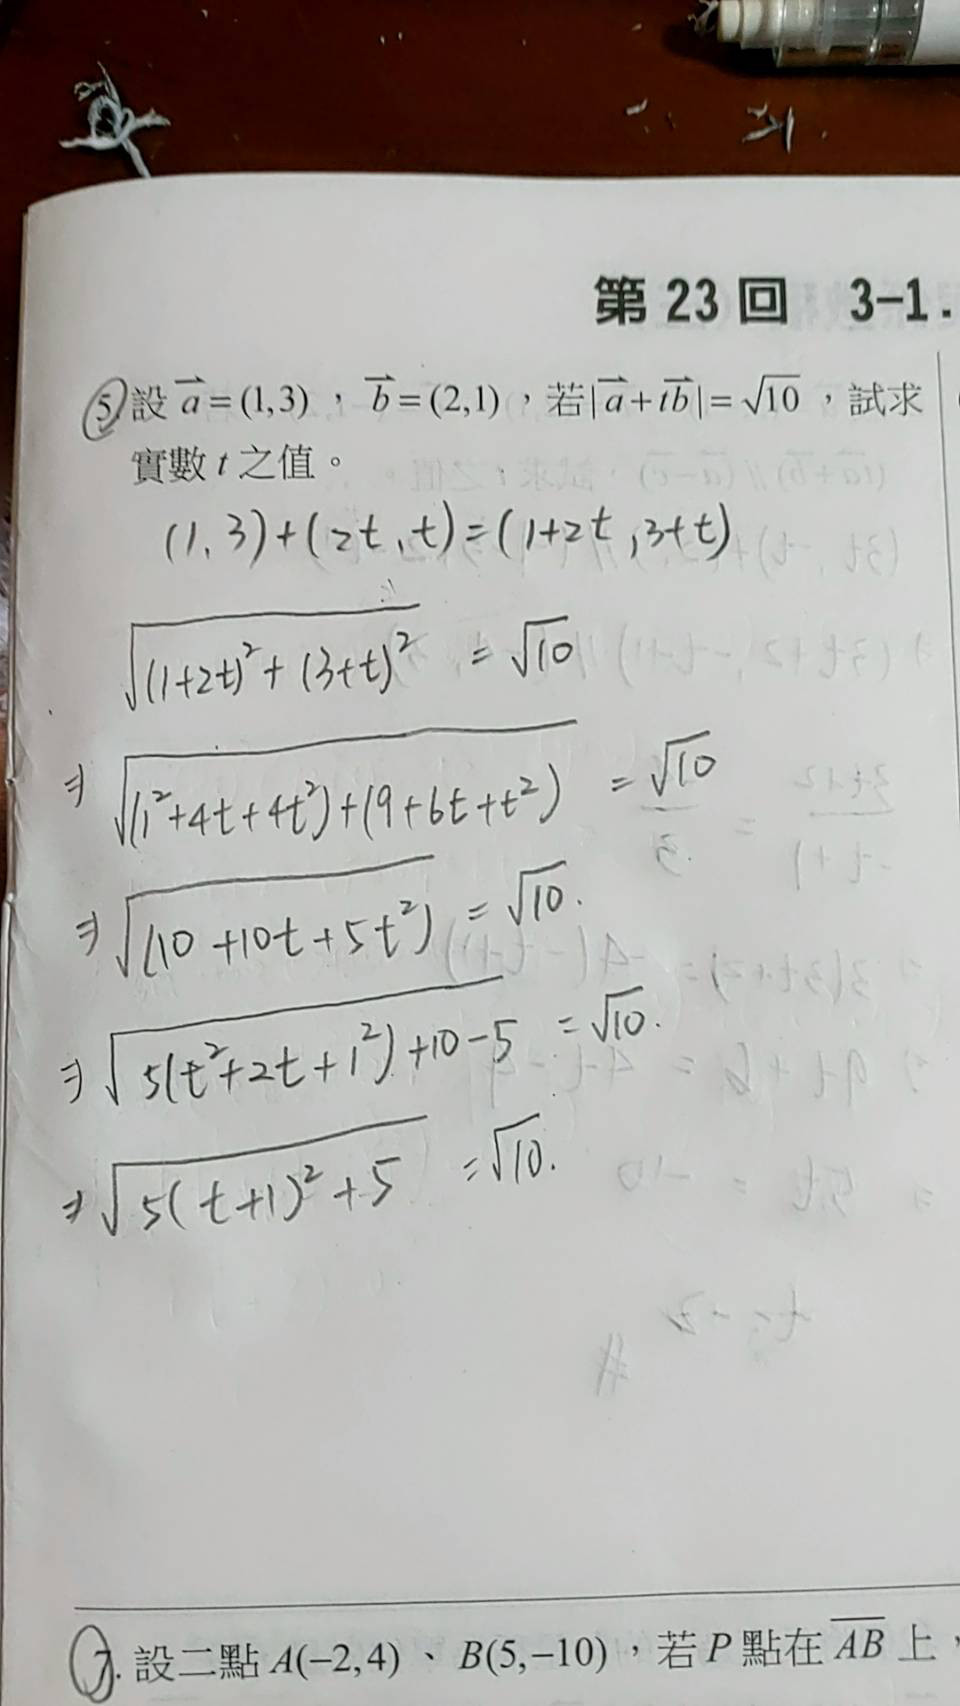 第 23 回 3-1.
5. 設 a⃗ = (1,3) ， b⃗ = (2,1) ，若 |a⃗ + tb⃗| = √10 ，試求
實數 t 之值。
(1, 3) + (2t, t) = (1+2t, 3+t)
√((1+2t)² + (3+t)²) = √10
⇒ √((1²+4t+4t²)+(9+6t+t²)) = √10
⇒ √(10+10t+5t²) = √10.
⇒ √(5(t²+2t+1²)+10-5) = √10.
⇒ √(5(t+1)²+5) = √10.
7. 設二點 A(−2,4) 、 B(5,−10) ，若 P 點在 AB 上，